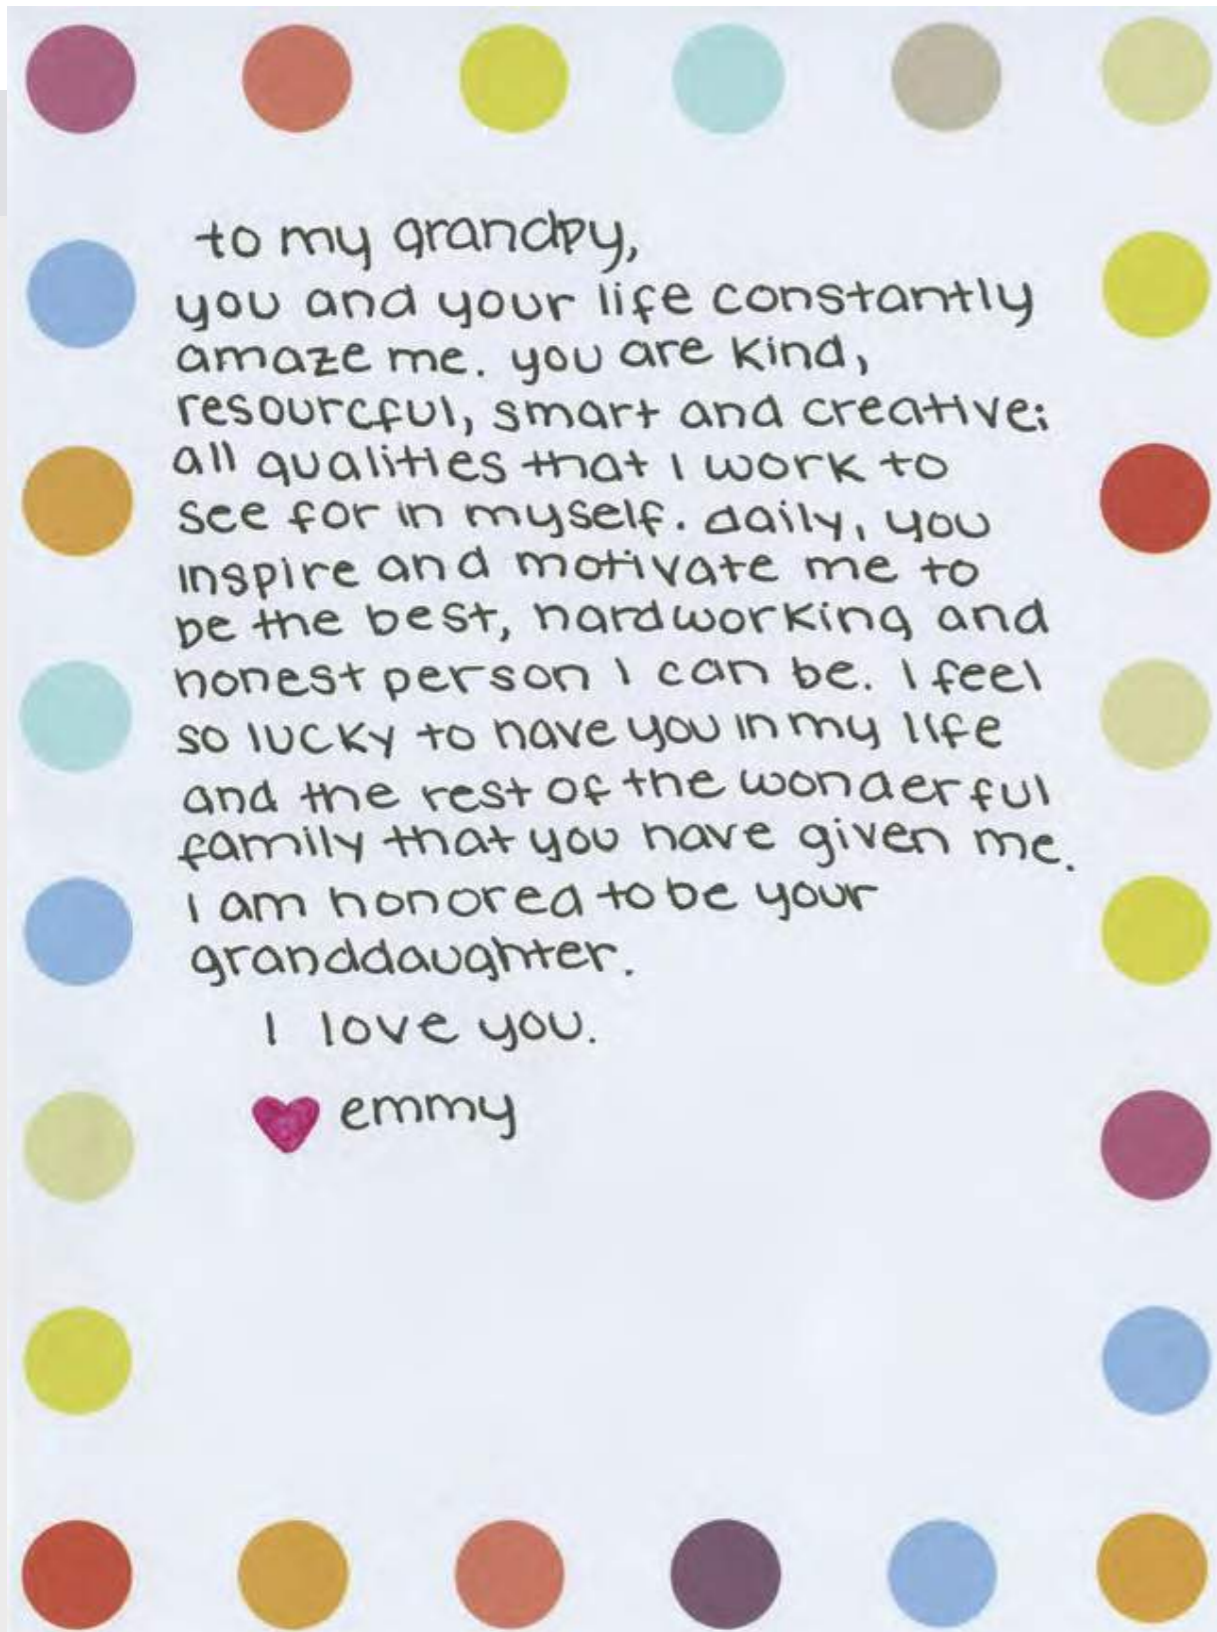 to my grandpy,
you and your life constantly
amaze me. you are kind,
resourcful, smart and creative;
all qualities that I work to
see for in myself. daily, you
inspire and motivate me to
be the best, hardworking and
honest person I can be. I feel
so lucky to have you in my life
and the rest of the wonderful
family that you have given me.
I am honored to be your
granddaughter.
I love you.
emmy